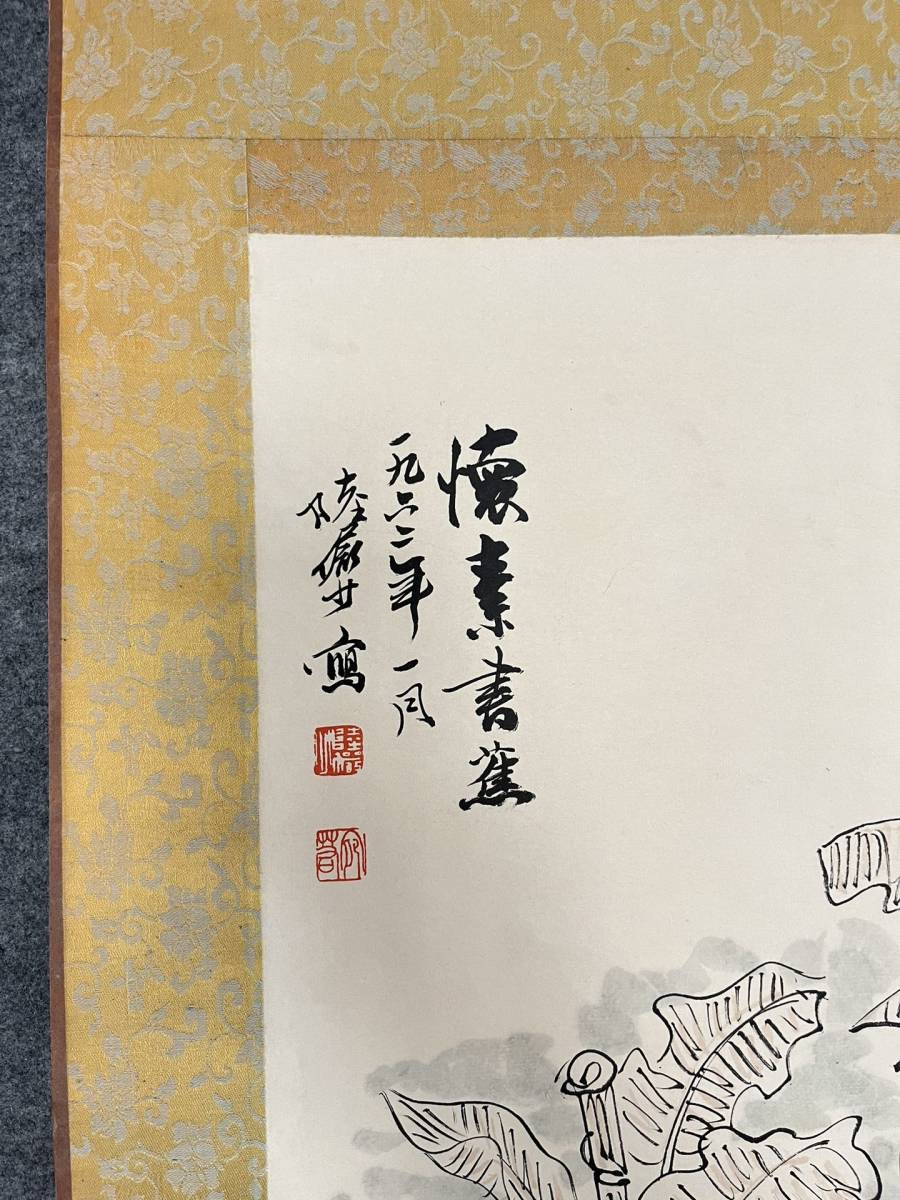 懷素書蕉
一九六二年一月
陸儼少寫